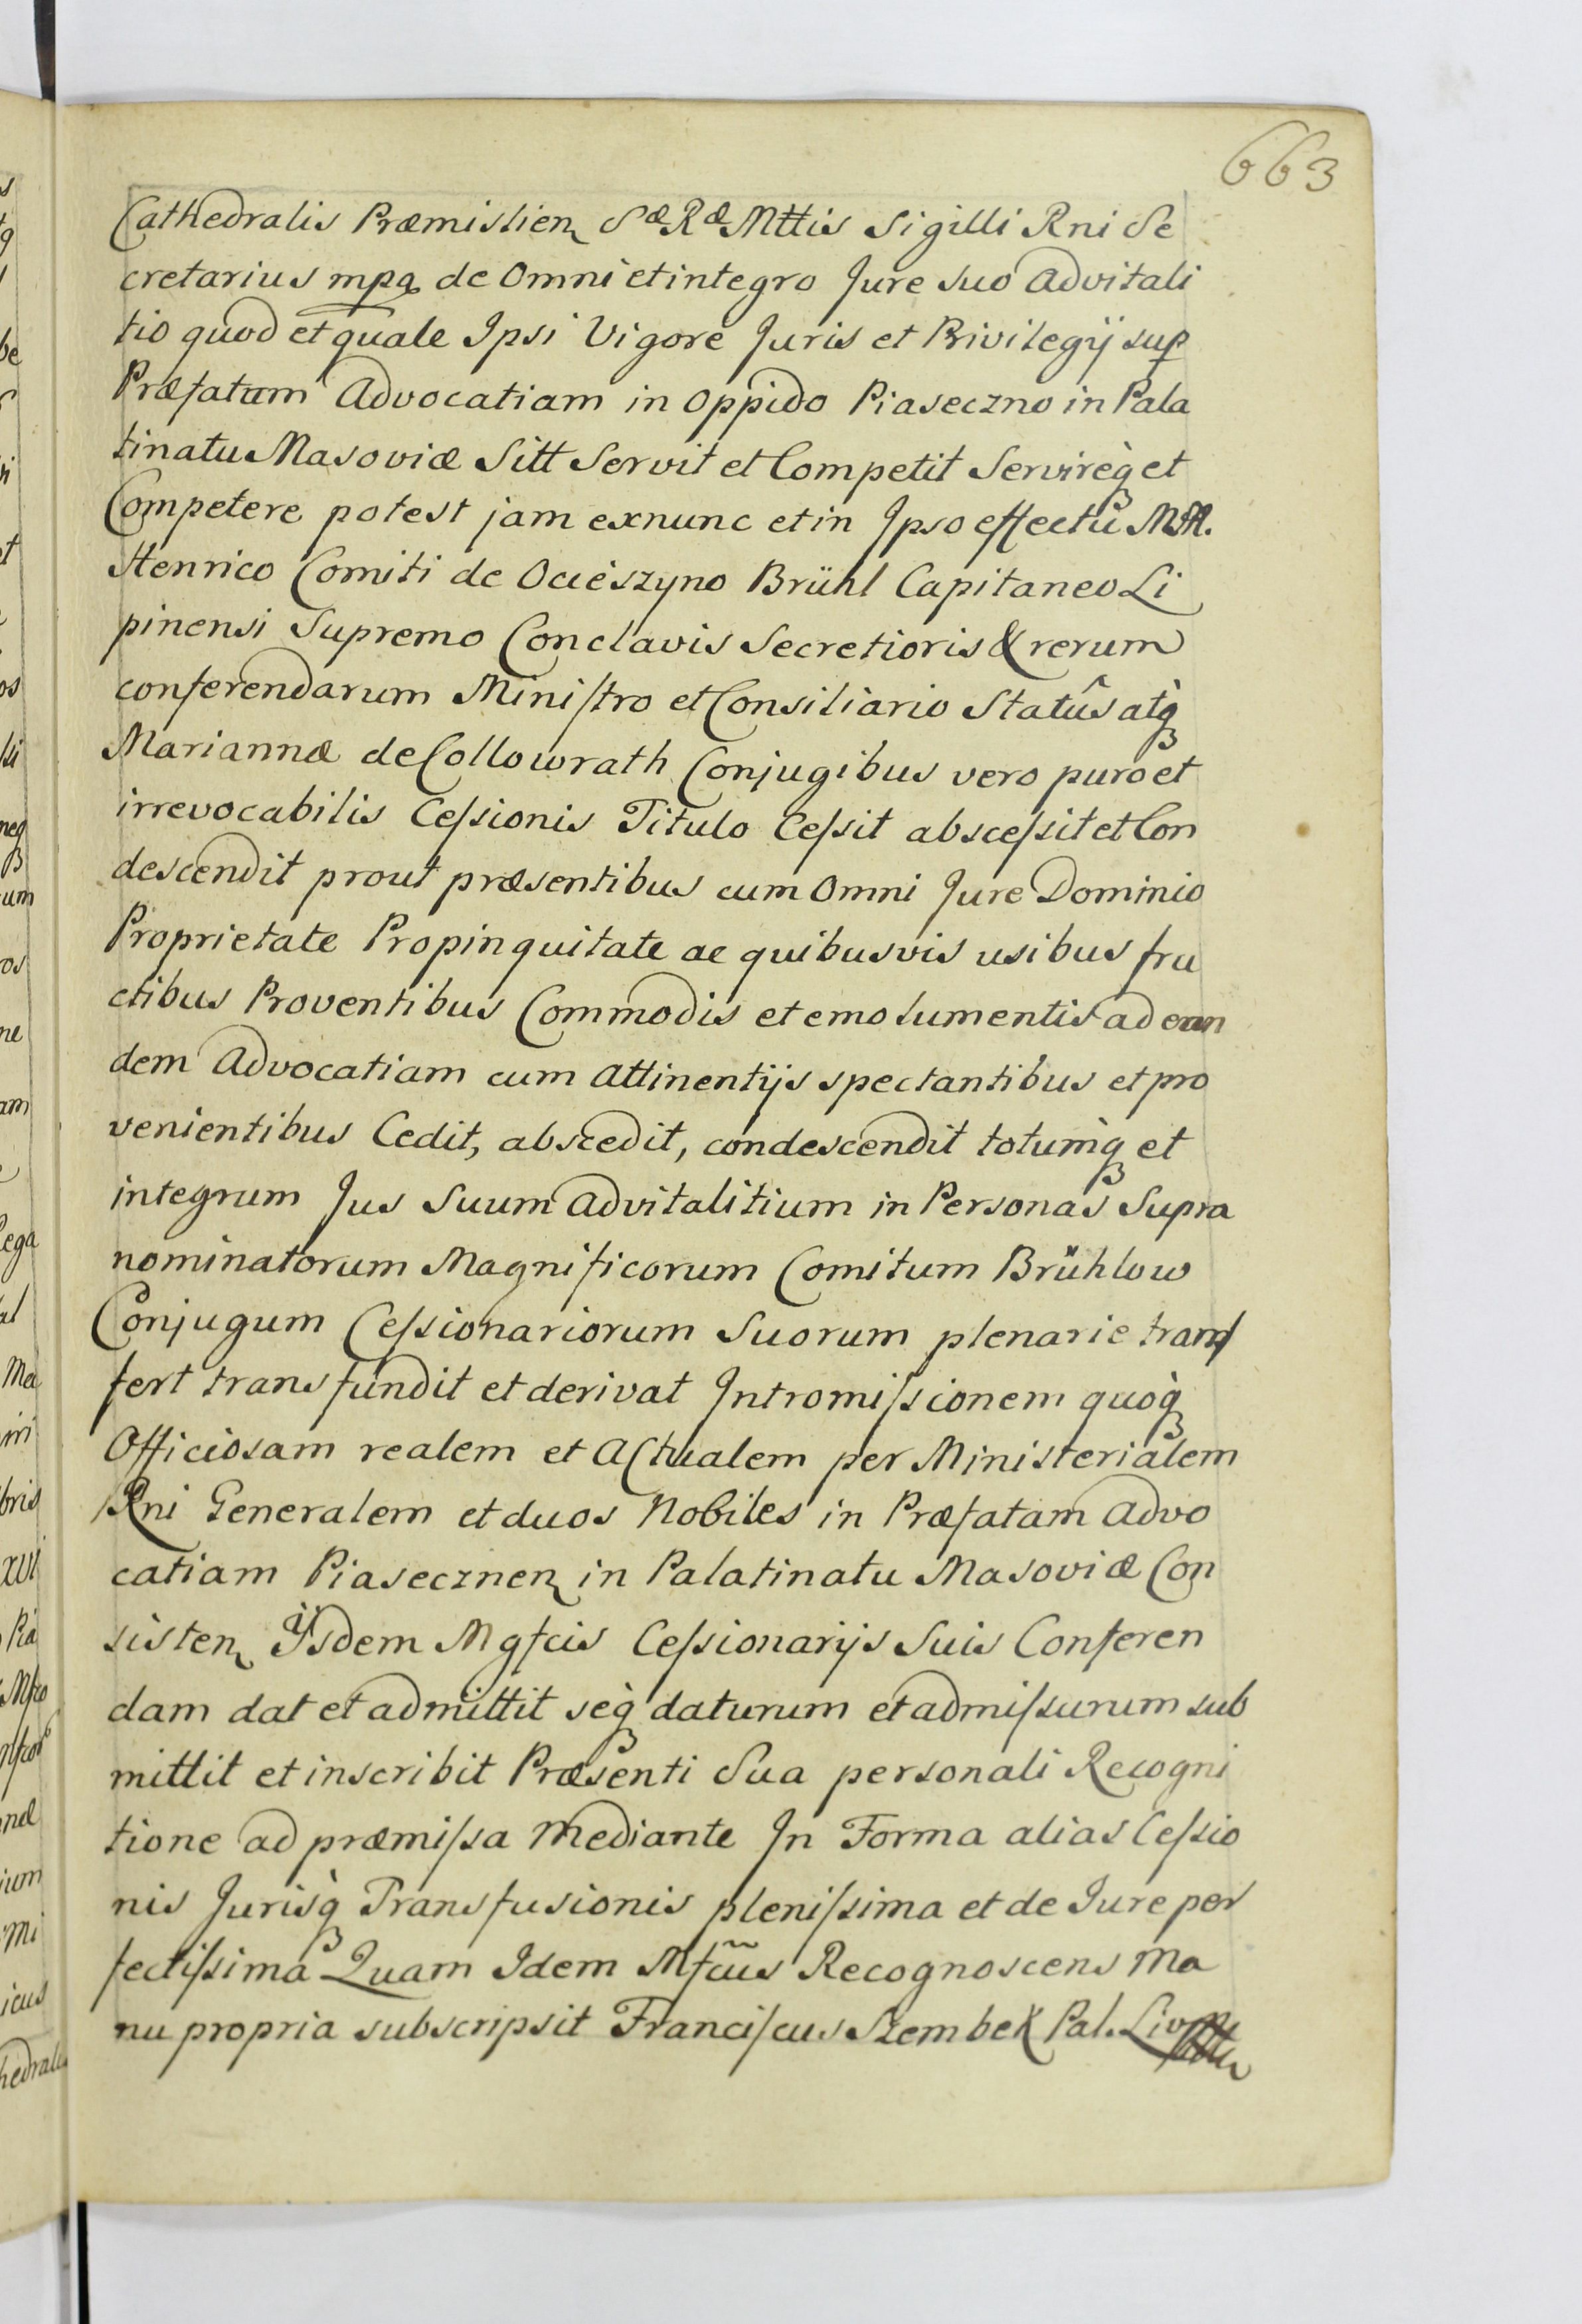 663
Cathedralis Præmislien Sæ Ræ Mttis Sigilli Rni Se
cretarius mpa de Omni et integro Jure suo Advitali
tio quod et quale Ipsi Vigore Juris et Privilegÿ sup
Præfatam Advocatiam in Oppido Piaseczno in Pala
tinatu Masoviæ Sitt Servit et Competit Servireq̀ et
Competere potest jam exnunc et in Ipso effectu
Henrico Comiti de Ocieszyno Brühl Capitaneo Li
pinensi Supremo Conclavis Secretioris & rerum
conferendarum Ministro et Consiliario Statûs atq̀
Mariannæ de Collowrath Conjugibus vero puro et
irrevocabilis Cessionis Titulo Cessit abscessit et Con
descendit prout præsentibus cum Omni Jure Dominio
Proprietate Propinquitate ac quibusvis usibus fru
ctibus Proventibus Commodis et emolumentis ad ean
dem Advocatiam cum Attinentijs spectantibus et pro
venientibus Cedit, abscedit, condescendit totumq̀ et
integrum Jus Suum Advitalitium in Personas Supra
nominatorum Magnificorum Comitum Brühlow
Conjugum Cessionariorum Suorum plenarie trans
fert transfundit et derivat Intromissionem quoq̀
Officiosam realem et Actualem per Ministerialem
Rni Generalem et duos Nobiles in Præfatam Advo
catiam Piasecznen in Palatinatu Masoviæ Con
sisten Ijsdem Mgfcis Cessionarijs Suis Conferen
dam dat et admittit seq̀ daturum et admissurum sub
mittit et inscribit Præsenti Sua personali Recogni
tione ad præmissa Mediante In Forma alias Cessio
nis Jurisq̀ Transfusionis plenissima et de Jure per
fectissima Quam Idem Mfcus Recognoscens Ma
nu propria subscripsit Franciscus Szembek Pal. Livon